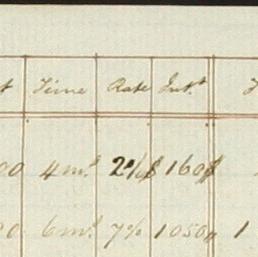 t Time Rate Int.t
00 4 m.s 2% $160
00 6 m.s 7% 1050 1